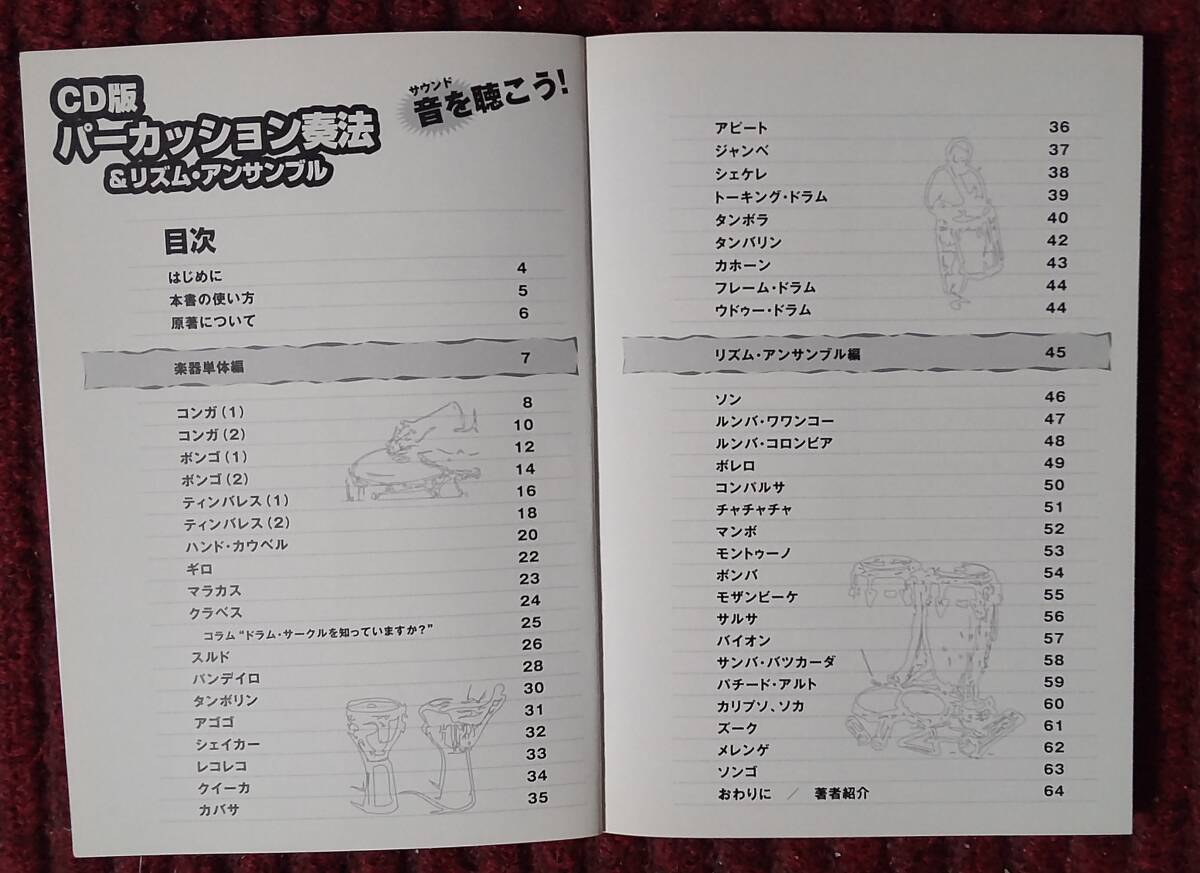 CD版
パーカッション奏法
&リズム・アンサンブル
サウンド
音を聴こう!
目次
はじめに 4
本書の使い方 5
原著について 6
楽器単体編 7
コンガ(1) 8
コンガ(2) 10
ボンゴ(1) 12
ボンゴ(2) 14
ティンバレス(1) 16
ティンバレス(2) 18
ハンド・カウベル 20
ギロ 22
マラカス 23
クラベス 24
コラム“ドラム・サークルを知っていますか?” 25
スルド 26
パンデイロ 28
タンボリン 30
アゴゴ 31
シェイカー 32
レコレコ 33
クイーカ 34
カバサ 35
アピート 36
ジャンベ 37
シェケレ 38
トーキング・ドラム 39
タンボラ 40
タンバリン 42
カホーン 43
フレーム・ドラム 44
ウドゥー・ドラム 44
リズム・アンサンブル編 45
ソン 46
ルンバ・ワワンコー 47
ルンバ・コロンビア 48
ボレロ 49
コンパルサ 50
チャチャチャ 51
マンボ 52
モントゥーノ 53
ボンバ 54
モザンビーケ 55
サルサ 56
バイオン 57
サンバ・バツカーダ 58
パチード・アルト 59
カリプソ、ソカ 60
ズーク 61
メレンゲ 62
ソンゴ 63
おわりに / 著者紹介 64